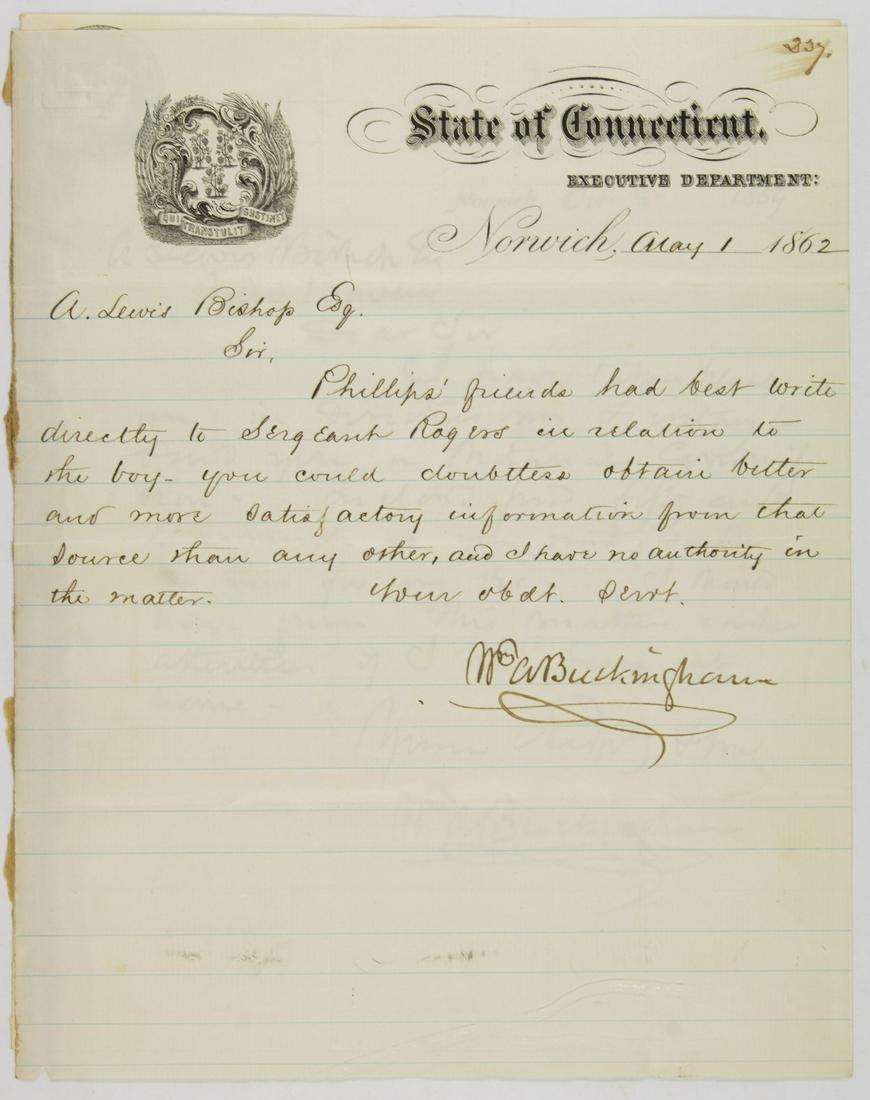 337.
State of Connecticut.
EXECUTIVE DEPARTMENT:
QUI TRANSTULIT SUSTINET
Norwich, May 1 1862
A. Lewis Bishop Esq.
Sir,
Phillips' friends had best write
directly to Sergeant Rogers in relation to
the boy - you could doubtless obtain better
and more satisfactory information from that
source than any other, and I have no authority in
the matter. Your obdt. Servt.
Wm A Buckingham